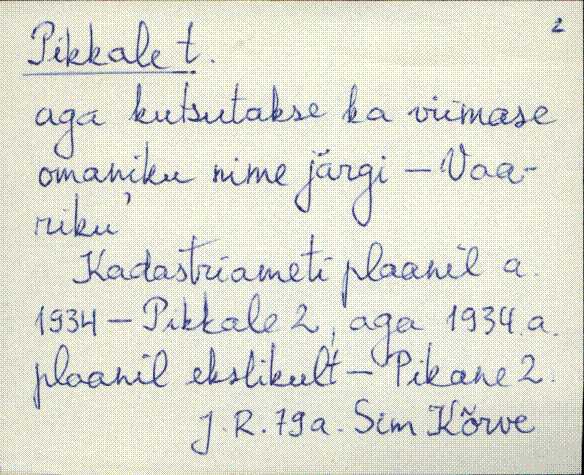 2
Pikkale t.
aga kutsutakse ka viimase
omaniku nime järgi – Vaa-
riku'
Kadastriameti plaanil a.
1934 – Pikkale 2, aga 1934.a.
plaanil ekslikult – Pikane 2.
J.R. 79a. Sim Kõrve